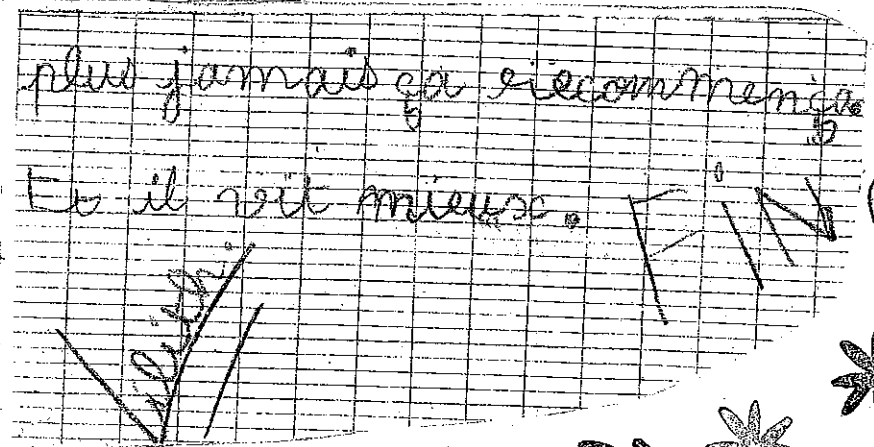 plus jamais ça recommença.
Et il vit mieux. FiN
Lilith.